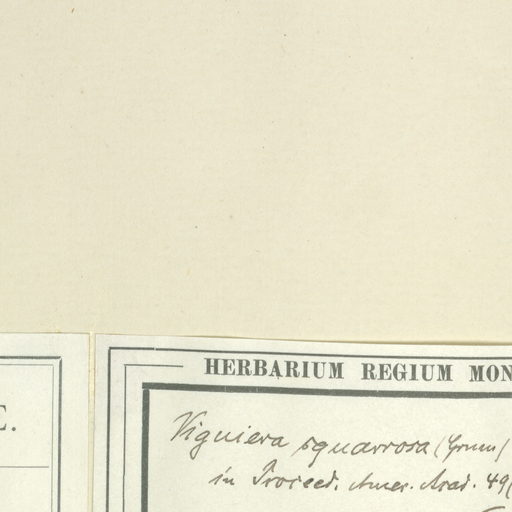 E.
HERBARIUM REGIUM MON
Viguiera squarrosa
in Proceed. Amer. Acad. 49(